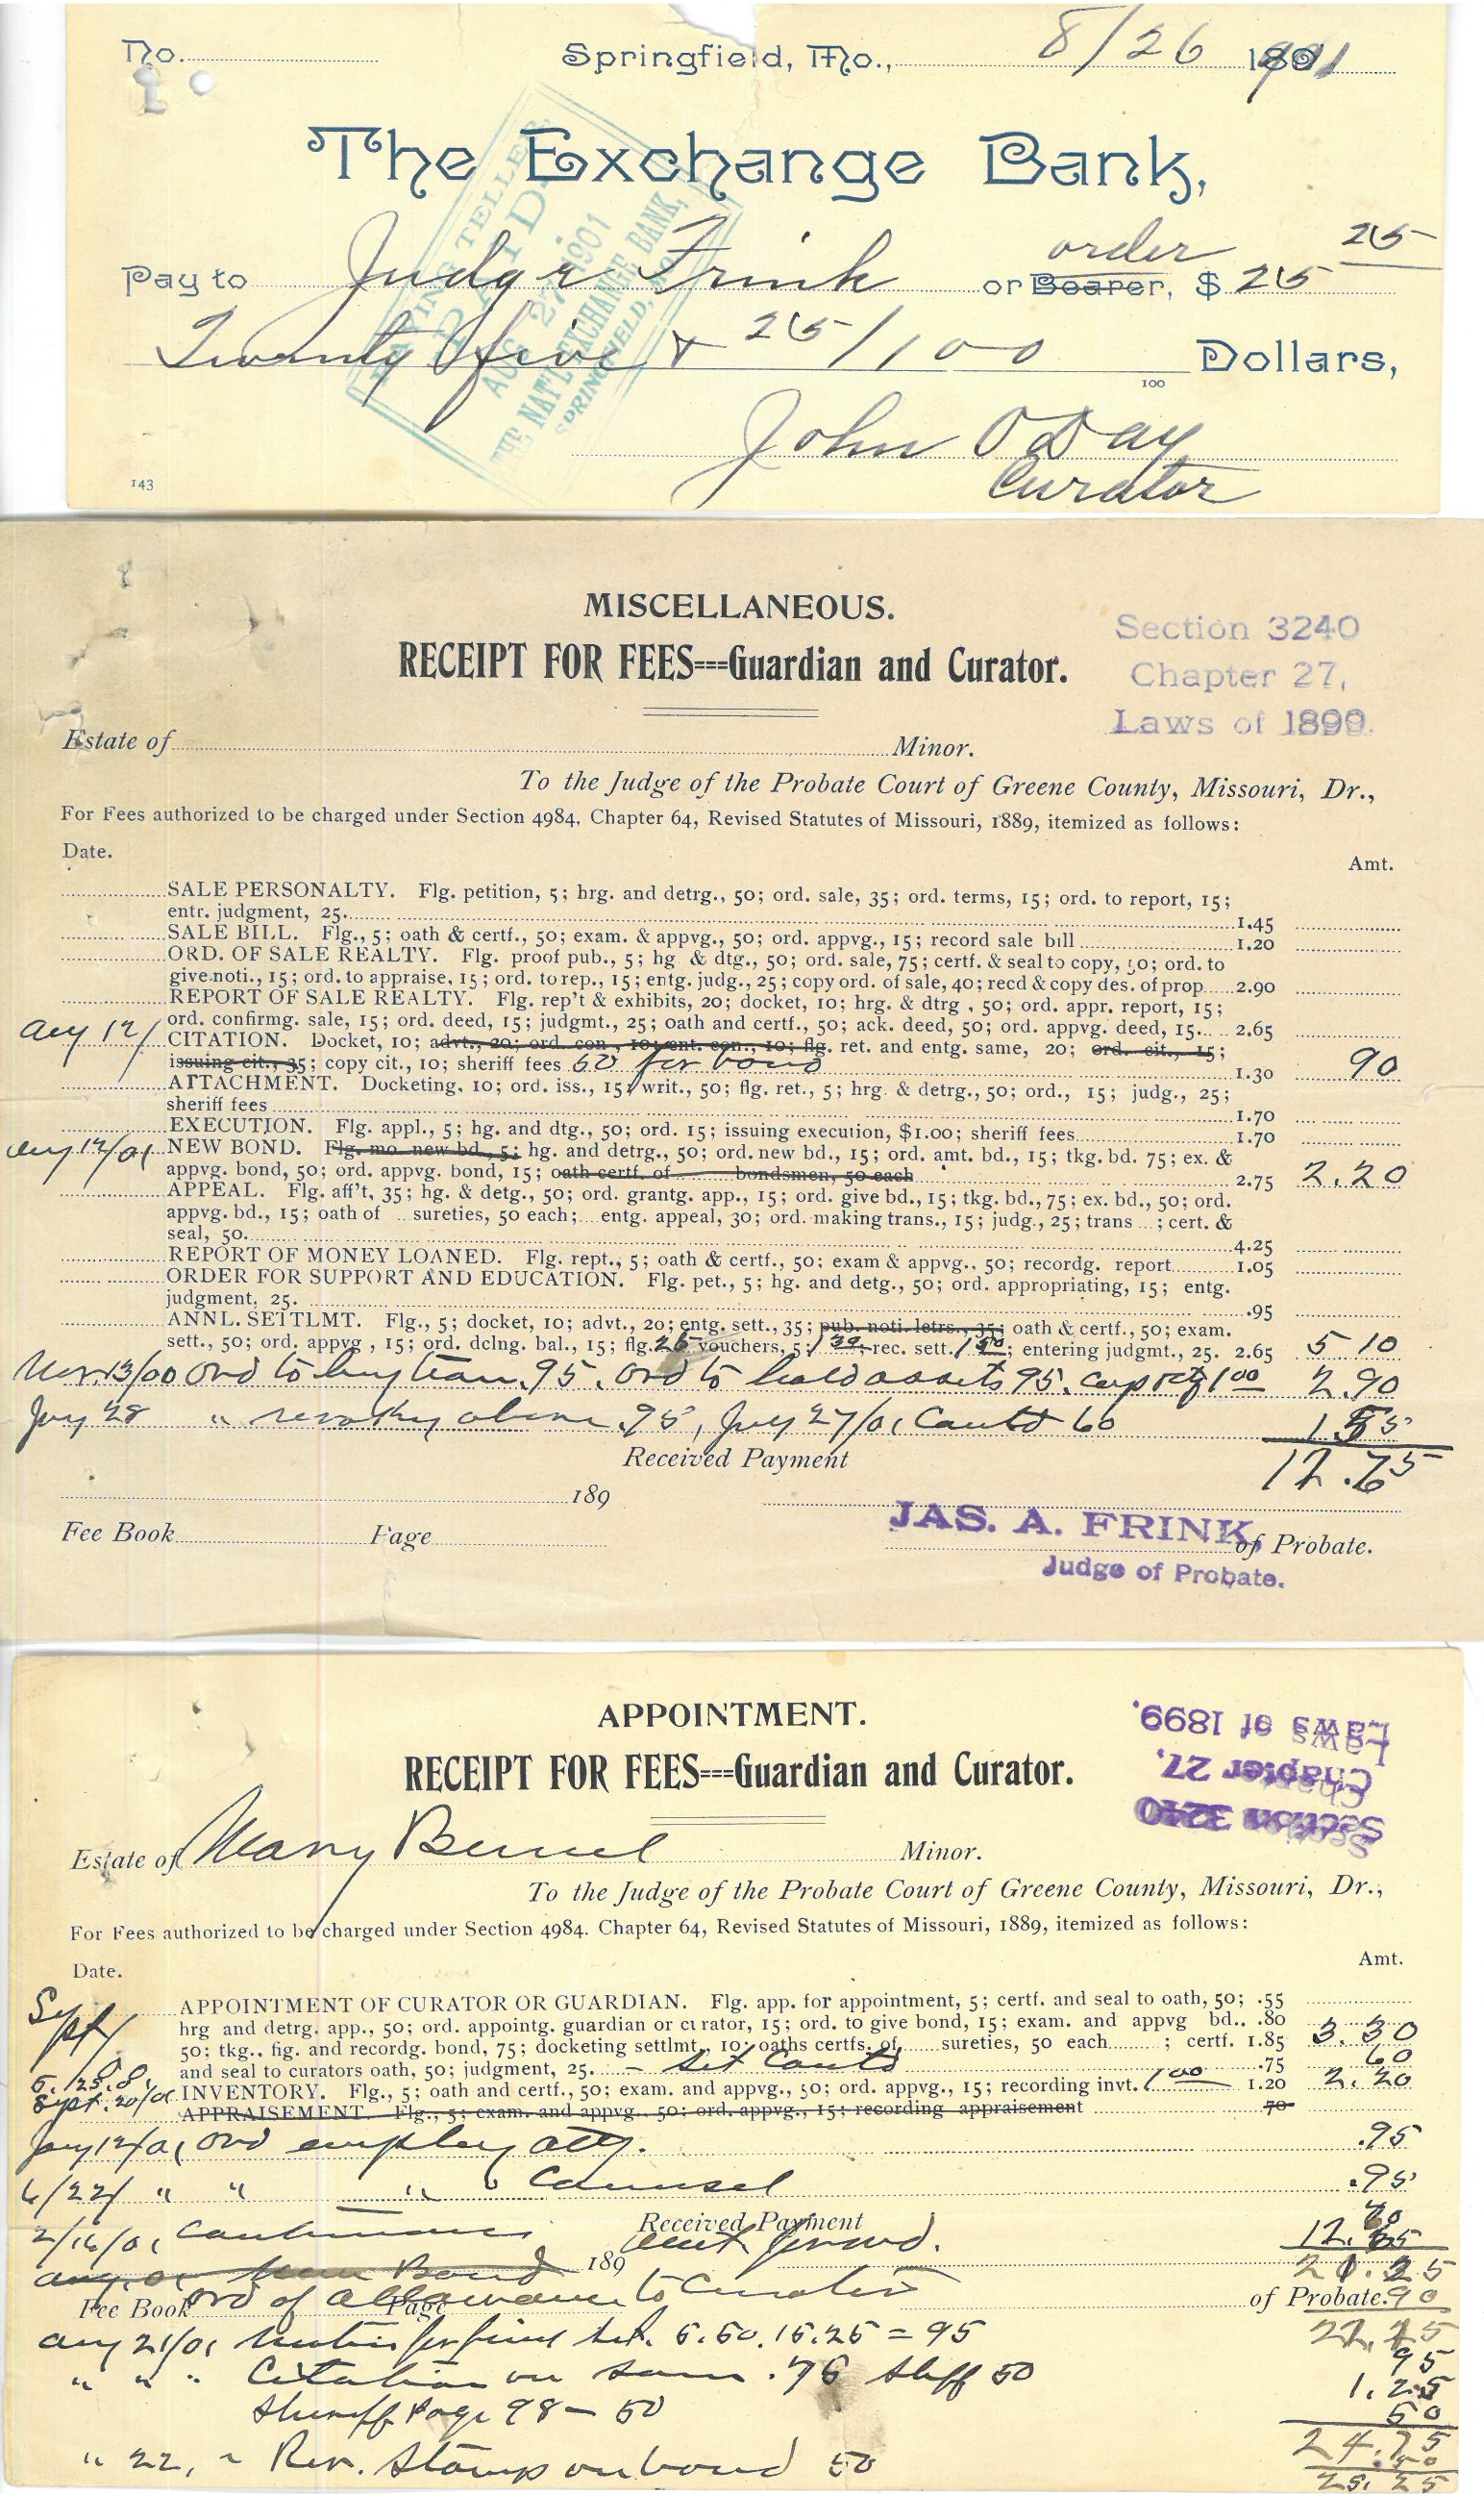 No. Springfield, Mo., 8/26 1901
The Exchange Bank,
PAYING TELLER
PAID
AUG 27 1901
THE NAT'L EXCHANGE BANK,
SPRINGFIELD, MO.
order
Pay to Judge Frink or Bearer, $ 25 25
Twenty five & 25/100 Dollars,
100
John O Day
Curator
143
MISCELLANEOUS.
RECEIPT FOR FEES===Guardian and Curator.
Section 3240
Chapter 27,
Laws of 1899.
Estate of Minor.
To the Judge of the Probate Court of Greene County, Missouri, Dr.,
For Fees authorized to be charged under Section 4984, Chapter 64, Revised Statutes of Missouri, 1889, itemized as follows:
Date.
Amt.
SALE PERSONALTY. Flg. petition, 5; hrg. and detrg., 50; ord. sale, 35; ord. terms, 15; ord. to report, 15;
entr. judgment, 25. 1.45
SALE BILL. Flg., 5; oath & certf., 50; exam. & appvg., 50; ord. appvg., 15; record sale bill 1.20
ORD. OF SALE REALTY. Flg. proof pub., 5; hg & dtg., 50; ord. sale, 75; certf. & seal to copy, 50; ord. to
give noti., 15; ord. to appraise, 15; ord. to rep., 15; entg. judg., 25; copy ord. of sale, 40; recd & copy des. of prop 2.90
REPORT OF SALE REALTY. Flg. rep't & exhibits, 20; docket, 10; hrg. & dtrg, 50; ord. appr. report, 15;
ord. confirmg. sale, 15; ord. deed, 15; judgmt., 25; oath and certf., 50; ack. deed, 50; ord. appvg. deed, 15. 2.65
Aug 12/ CITATION. Docket, 10; advt., 20; ord. con., 10; ent. con., 10; flg. ret. and entg. same, 20; ord. cit., 15;
issuing cit., 35; copy cit., 10; sheriff fees 60 for bond 1.30 90
ATTACHMENT. Docketing. 10; ord. iss., 15; writ., 50; flg. ret., 5; hrg. & detrg., 50; ord., 15; judg., 25;
sheriff fees 1.70
EXECUTION. Flg. appl., 5; hg. and dtg., 50; ord. 15; issuing execution, $1.00; sheriff fees 1.70
Aug 12/01 NEW BOND. Flg. mo. new bd., 5; hg. and detrg., 50; ord. new bd., 15; ord. amt. bd., 15; tkg. bd. 75; ex. &
appvg. bond, 50; ord. appvg. bond, 15; oath certf. of bondsmen, 50 each 2.75 2.20
APPEAL. Flg. aff't, 35; hg. & detg., 50; ord. grantg. app., 15; ord. give bd., 15; tkg. bd., 75; ex. bd., 50; ord.
appvg. bd., 15; oath of sureties, 50 each; entg. appeal, 30; ord. making trans., 15; judg., 25; trans ; cert. &
seal, 50. 4.25
REPORT OF MONEY LOANED. Flg. rept., 5; oath & certf., 50; exam & appvg., 50; recordg. report 1.05
ORDER FOR SUPPORT AND EDUCATION. Flg. pet., 5; hg. and detg., 50; ord. appropriating, 15; entg.
judgment, 25. .95
ANNL. SETTLMT. Flg., 5; docket, 10; advt., 20; entg. sett., 35; pub. noti. letrs., 35; oath & certf., 50; exam.
sett., 50; ord. appvg, 15; ord. dclng. bal., 15; flg. 26 vouchers, 5; 1 30 rec. sett. 1 50; entering judgmt., 25. 2.65 5 10
Nov. 13/00 Ord to buy .95. Ord to hold assets 95. 1 00 2.90
28 " above .95, 27/01 Contd 60 1.55
Received Payment 12.65
189
JAS. A. FRINK,
of Probate.
Judge of Probate.
Fee Book Page
APPOINTMENT.
RECEIPT FOR FEES===Guardian and Curator.
Section 3240
Chapter 27,
Laws of 1899.
Estate of Mary Minor.
To the Judge of the Probate Court of Greene County, Missouri, Dr.,
For Fees authorized to be charged under Section 4984, Chapter 64, Revised Statutes of Missouri, 1889, itemized as follows:
Date.
Amt.
Sept/ APPOINTMENT OF CURATOR OR GUARDIAN. Flg. app. for appointment, 5; certf. and seal to oath, 50; .55
hrg and detrg. app., 50; ord. appointg. guardian or curator, 15; ord. to give bond, 15; exam. and appvg bd.. .80
50; tkg., flg. and recordg. bond, 75; docketing settlmt., 10; oaths certfs. of sureties, 50 each ; certf. 1.85 3.30
and seal to curators oath, 50; judgment, 25. - Set Contd .75 60
Sept. 20/01 INVENTORY. Flg., 5; oath and certf., 50; exam. and appvg., 50; ord. appvg., 15; recording invt. 1 00 1.20 2.20
APPRAISEMENT. Flg., 5; exam. and appvg., 50; ord. appvg., 15; recording appraisement 70
12/01 Ord employ atty. .95
6/22/ " " " Counsel .95
2/16/01 Continuance
Received Payment
Amt forward.
189
21.25
Ord of allowance to Curator
Fee Book Page of Probate. 90
Aug 21/01 Motion for final set. 5.50.15.25 = 95
95
" " " Citation on same .75 Shff 50 1.25
Sheriff Page 98 - 50 50
24.75
" 22, " Rev. Stamp on bond 50 .50
25.25